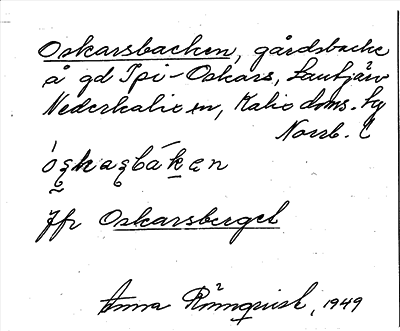 Oskarsbacken, gårdsbacke
å gd Ipi-Oskars, Lantjärv
Nederkalix sn, Kalix doms. hg
Norrb. l
Jfr Oskarsberget
Anna Rönnqvist, 1949